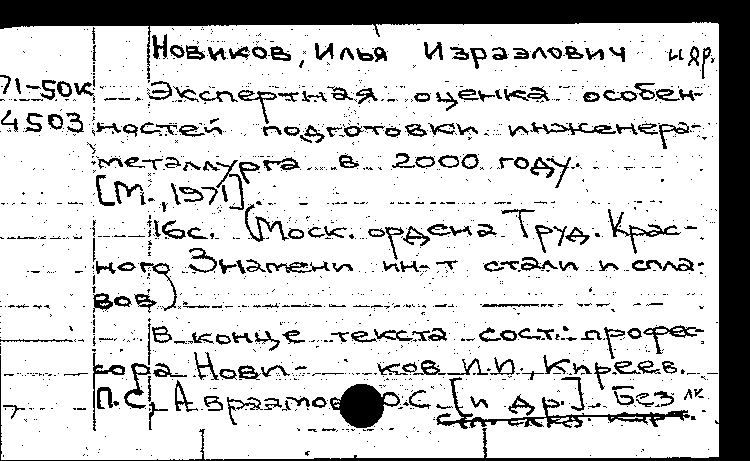 Новиков, Илья Израэлович и др.
71-50К Экспертная оценка особен-
4503 ностей подготовки инженера-
металлурга в 2000 году.
[М., 1971].
16с. (Моск. ордена Труд. Крас-
ного Знамени ин-т стали и спла-
вов).
В конце текста сост.: профес-
сора Нови- ков И.И., Киреев.
П.С, Авраамов Ю.С. [и др.]. Без